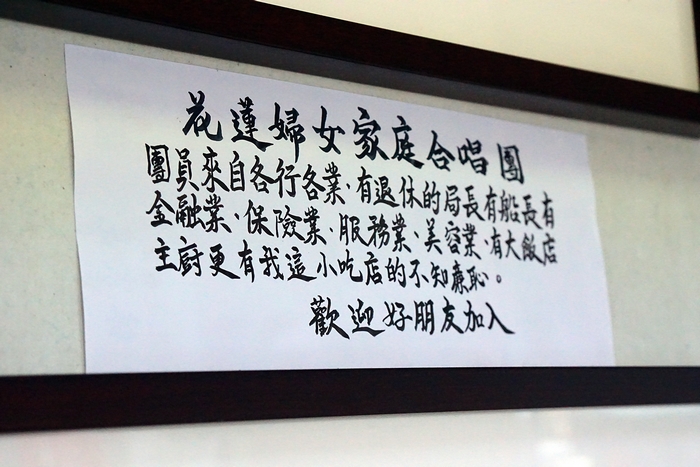 花蓮婦女家庭合唱團
團員來自各行各業、有退休的局長有船長有
金融業、保險業、服務業、美容業、有大飯店
主廚更有我這小吃店的不知廉恥。
歡迎好朋友加入